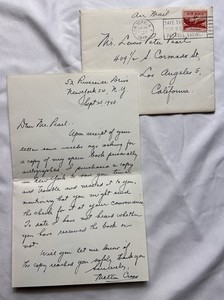 Air Mail
Mr. Louis Peter Pearl
409½ S. Coronado St
Los Angeles 5,
California.
AIR MAIL
52 Riverside Drive
New York 24, N.Y.
Sept 21, 1948
Dear Mr. Pearl:
Upon receipt of your
letter some weeks ago asking for
a copy of my opera book personally
autographed, I purchased a copy
in New York to save you time
and trouble and mailed it to you,
mentioning that you might send
the check for it at your convenience.
To date I have not heard whether
you have received the book or
not.
Will you let me know if
the copy reached you safely, thank you
Sincerely,
Milton Cross